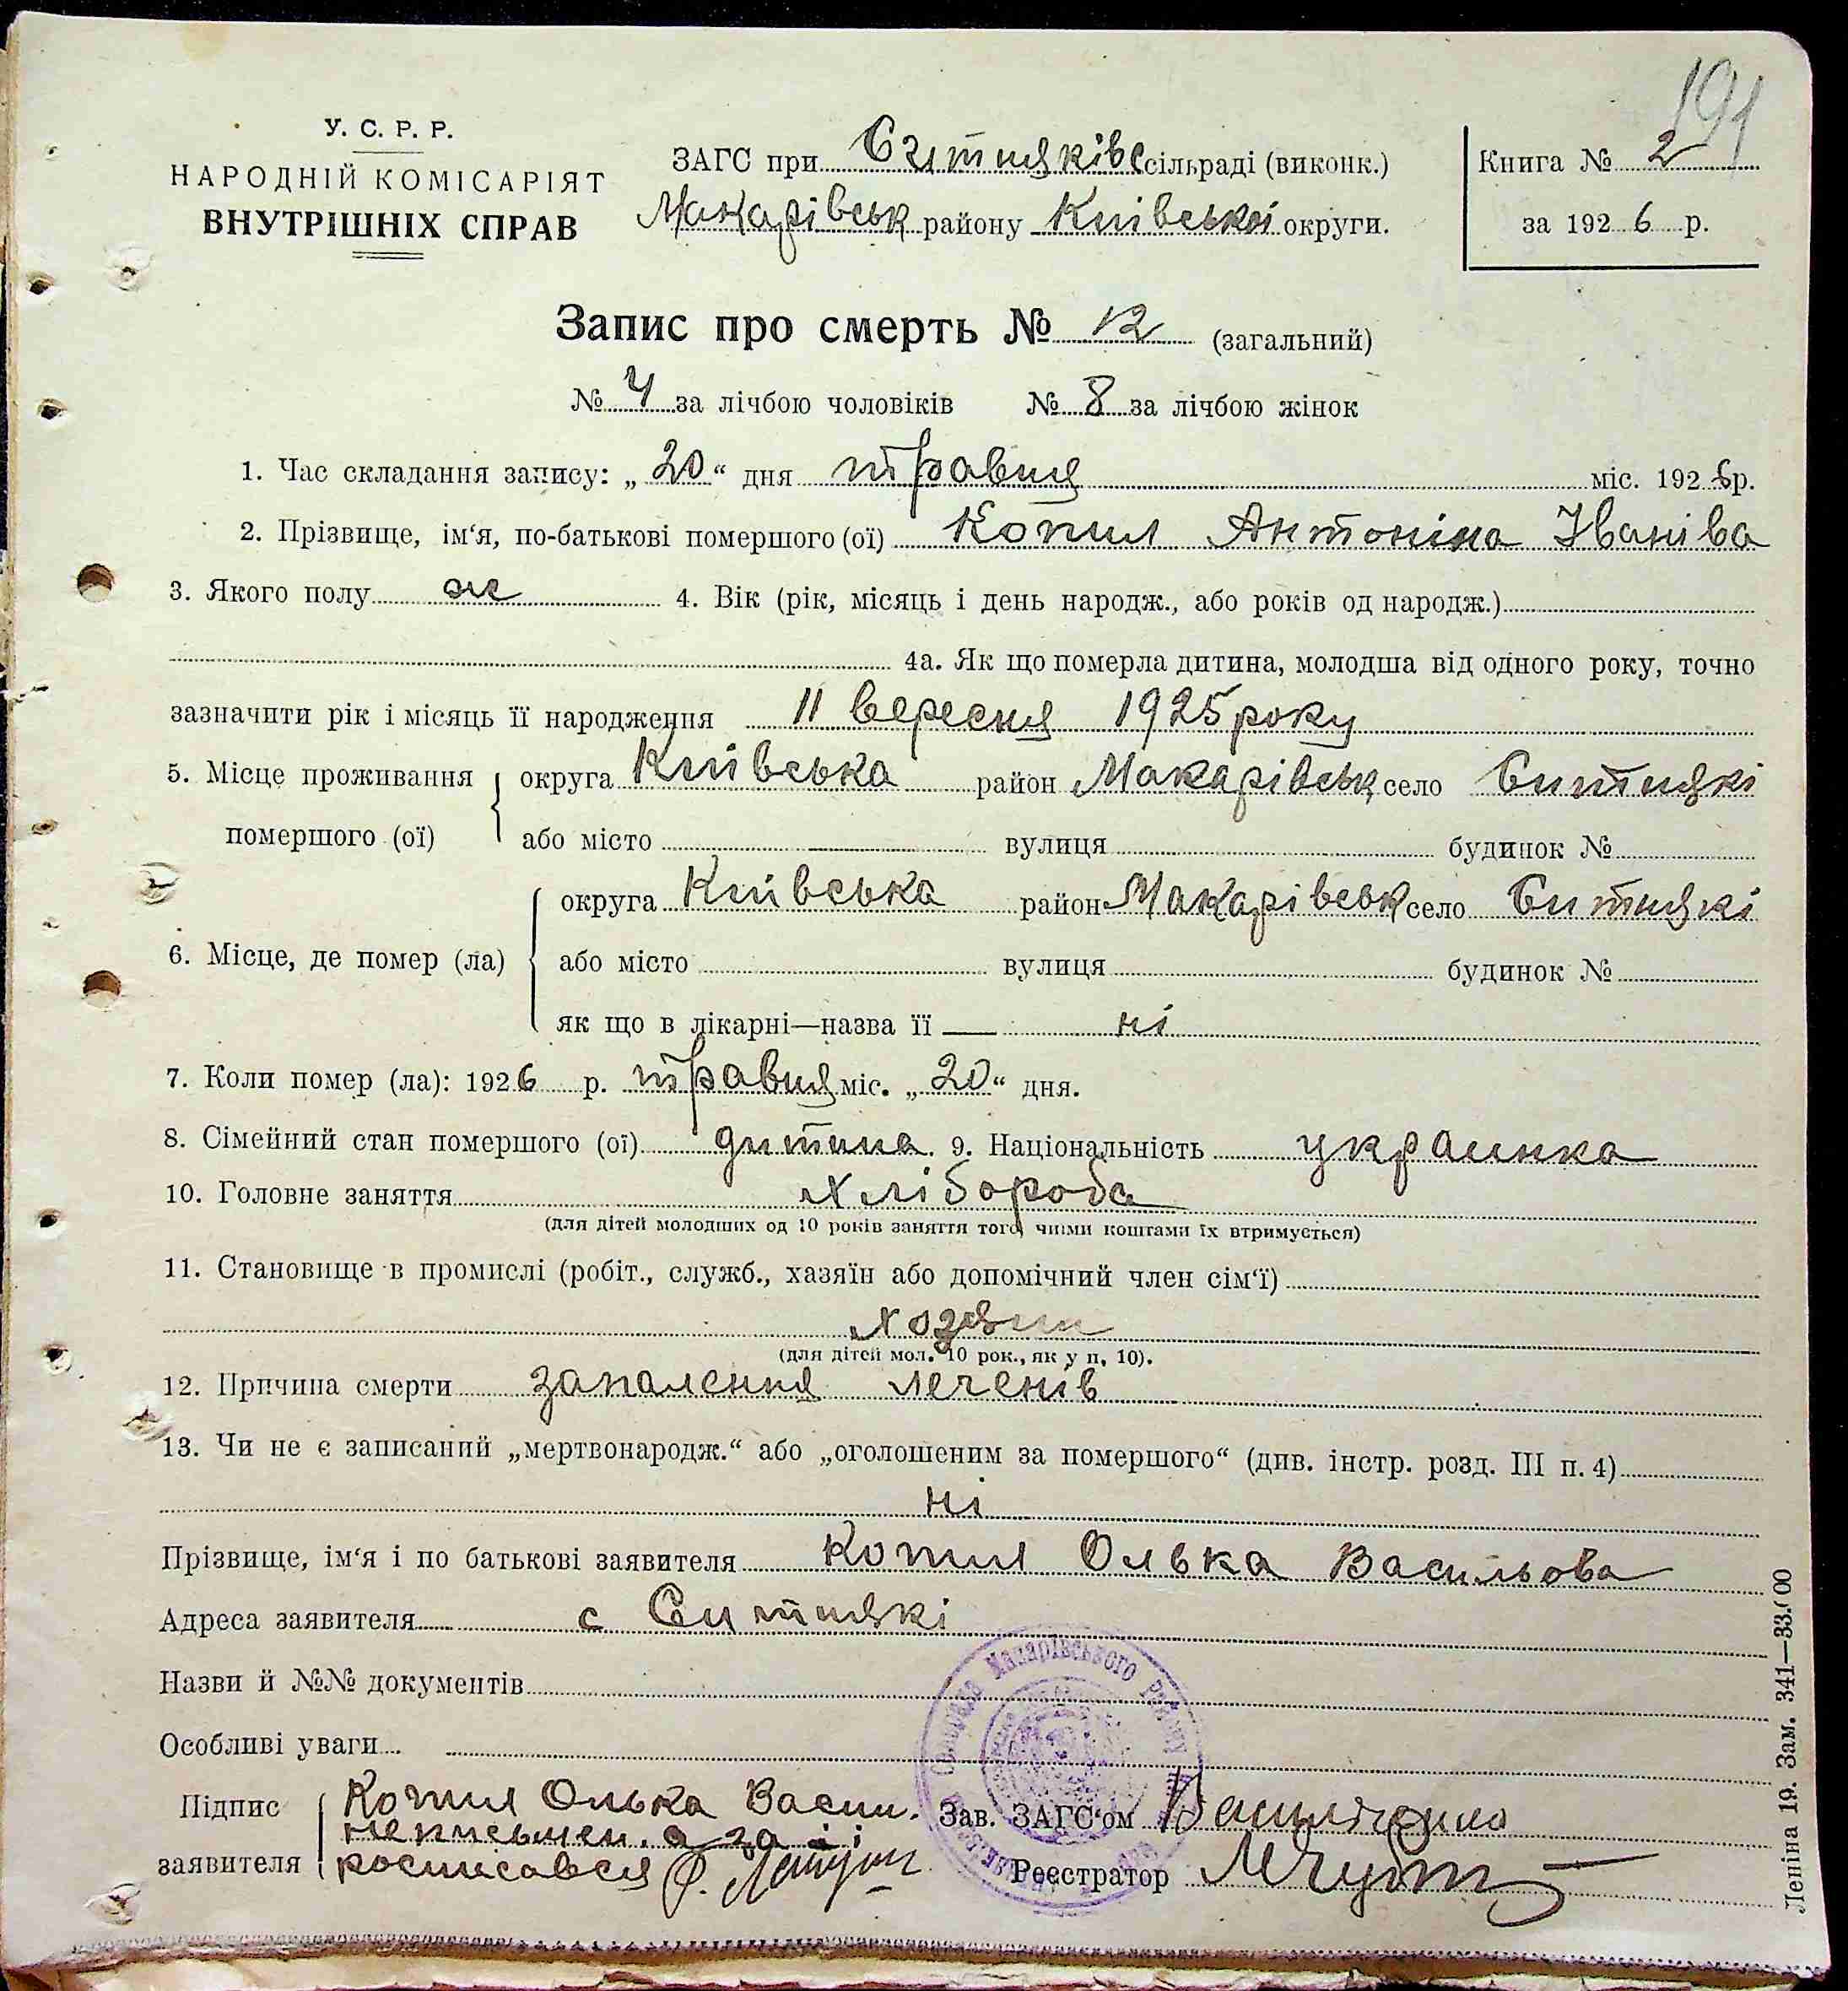 191
У. С. Р. Р.
НАРОДНІЙ КОМІСАРІЯТ
ВНУТРІШНІХ СПРАВ
ЗАГС при Ситняківс сільраді (виконк.)
Макарівськ району Київської округи.
Книга № 2
за 1926 р.
Запис про смерть № 12 (загальний)
№ 4 за лічбою чоловіків № 8 за лічбою жінок
1. Час складання запису: „20“ дня травня міс. 1926 р.
2. Прізвище, ім‘я, по-батькові помершого (ої) Копил Антоніна Іваніва
3. Якого полу ж 4. Вік (рік, місяць і день народж., або років од народж.)
4а. Як що померла дитина, молодша від одного року, точно
зазначити рік і місяць її народження 11 вересня 1925 року
5. Місце проживання помершого (ої) округа Київська район Макарівськ село Ситняки
або місто вулиця будинок №
6. Місце, де помер (ла) округа Київська район Макарівськ село Ситнякі
або місто вулиця будинок №
як що в лікарні—назва її — ні
7. Коли помер (ла): 1926 р. травня міс. „20“ дня.
8. Сімейний стан помершого (ої) дитина 9. Національність украинка
10. Головне заняття хлібороба
(для дітей молодших од 10 років заняття того, чиїми коштами їх втримується)
11. Становище в промислі (робіт., служб., хазяїн або допомічний член сім‘ї)
хозяин
(для дітей мол. 10 рок., як у п. 10).
12. Причина смерти запалення легенів
13. Чи не є записаний „мертвонародж.“ або „оголошеним за помершого“ (див. інстр. розд. III п. 4)
ні
Прізвище, ім‘я і по батькові заявителя Копил Олька Васильова
Адреса заявителя с Ситнякі
Назви й №№ документів
Особливі уваги
Підпис заявителя Копил Олька Васил.
неписьмен. а за її
росписався
Зав. ЗАГС‘ом
Реєстратор
Макарівського Району
Леніна 19. Зам. 341—33.000